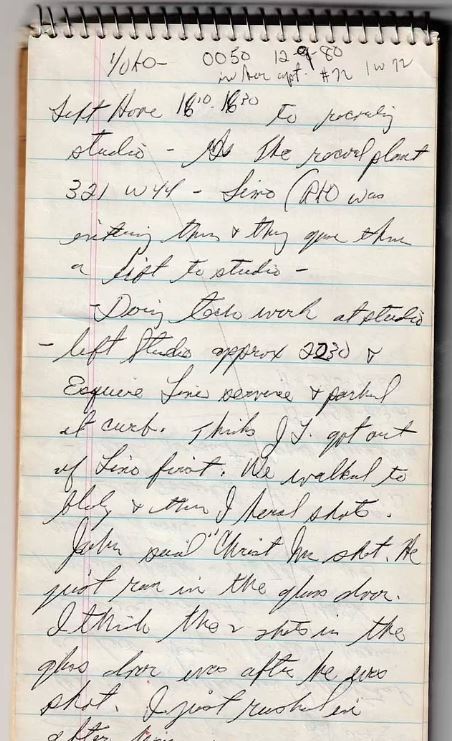 Yoko - 0050 12-9-80
in her apt. #72 1 W 72
Left Home 18¹⁰-18³⁰ to recording
studio - the record plant
321 W44 - Limo (RKO was
exiting then & they gave them
a lift to studio -
- Doing tech work at studio
- left studio approx 2230 &
Esquire Limo service & parked
at curb. Thinks J.L. got out
of Limo first. We walked to
bldg & then I heard shots.
John said "Christ Im shot. He
just ran in the glass door.
I think the 2 shots in the
glass door was after he was
shot. I just rushed in
after him